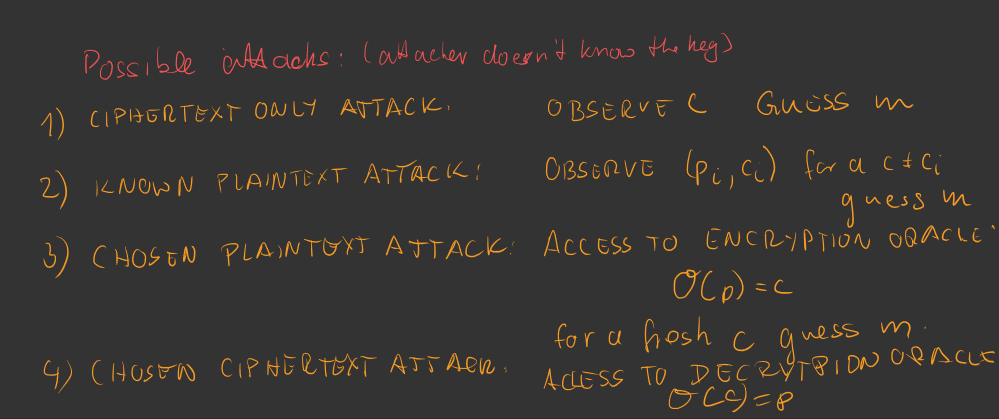 Possible attacks: (attacker doesn't know the key)
1) CIPHERTEXT ONLY ATTACK. OBSERVE C GUESS m
2) KNOWN PLAINTEXT ATTACK: OBSERVE (pi, ci) for a c ≠ ci
guess m
3) CHOSEN PLAINTEXT ATTACK: ACCESS TO ENCRYPTION ORACLE:
O(p) = c
for a fresh c guess m.
4) CHOSEN CIPHERTEXT ATTACK. ACCESS TO DECRYTPION ORACLE
O(c) = p